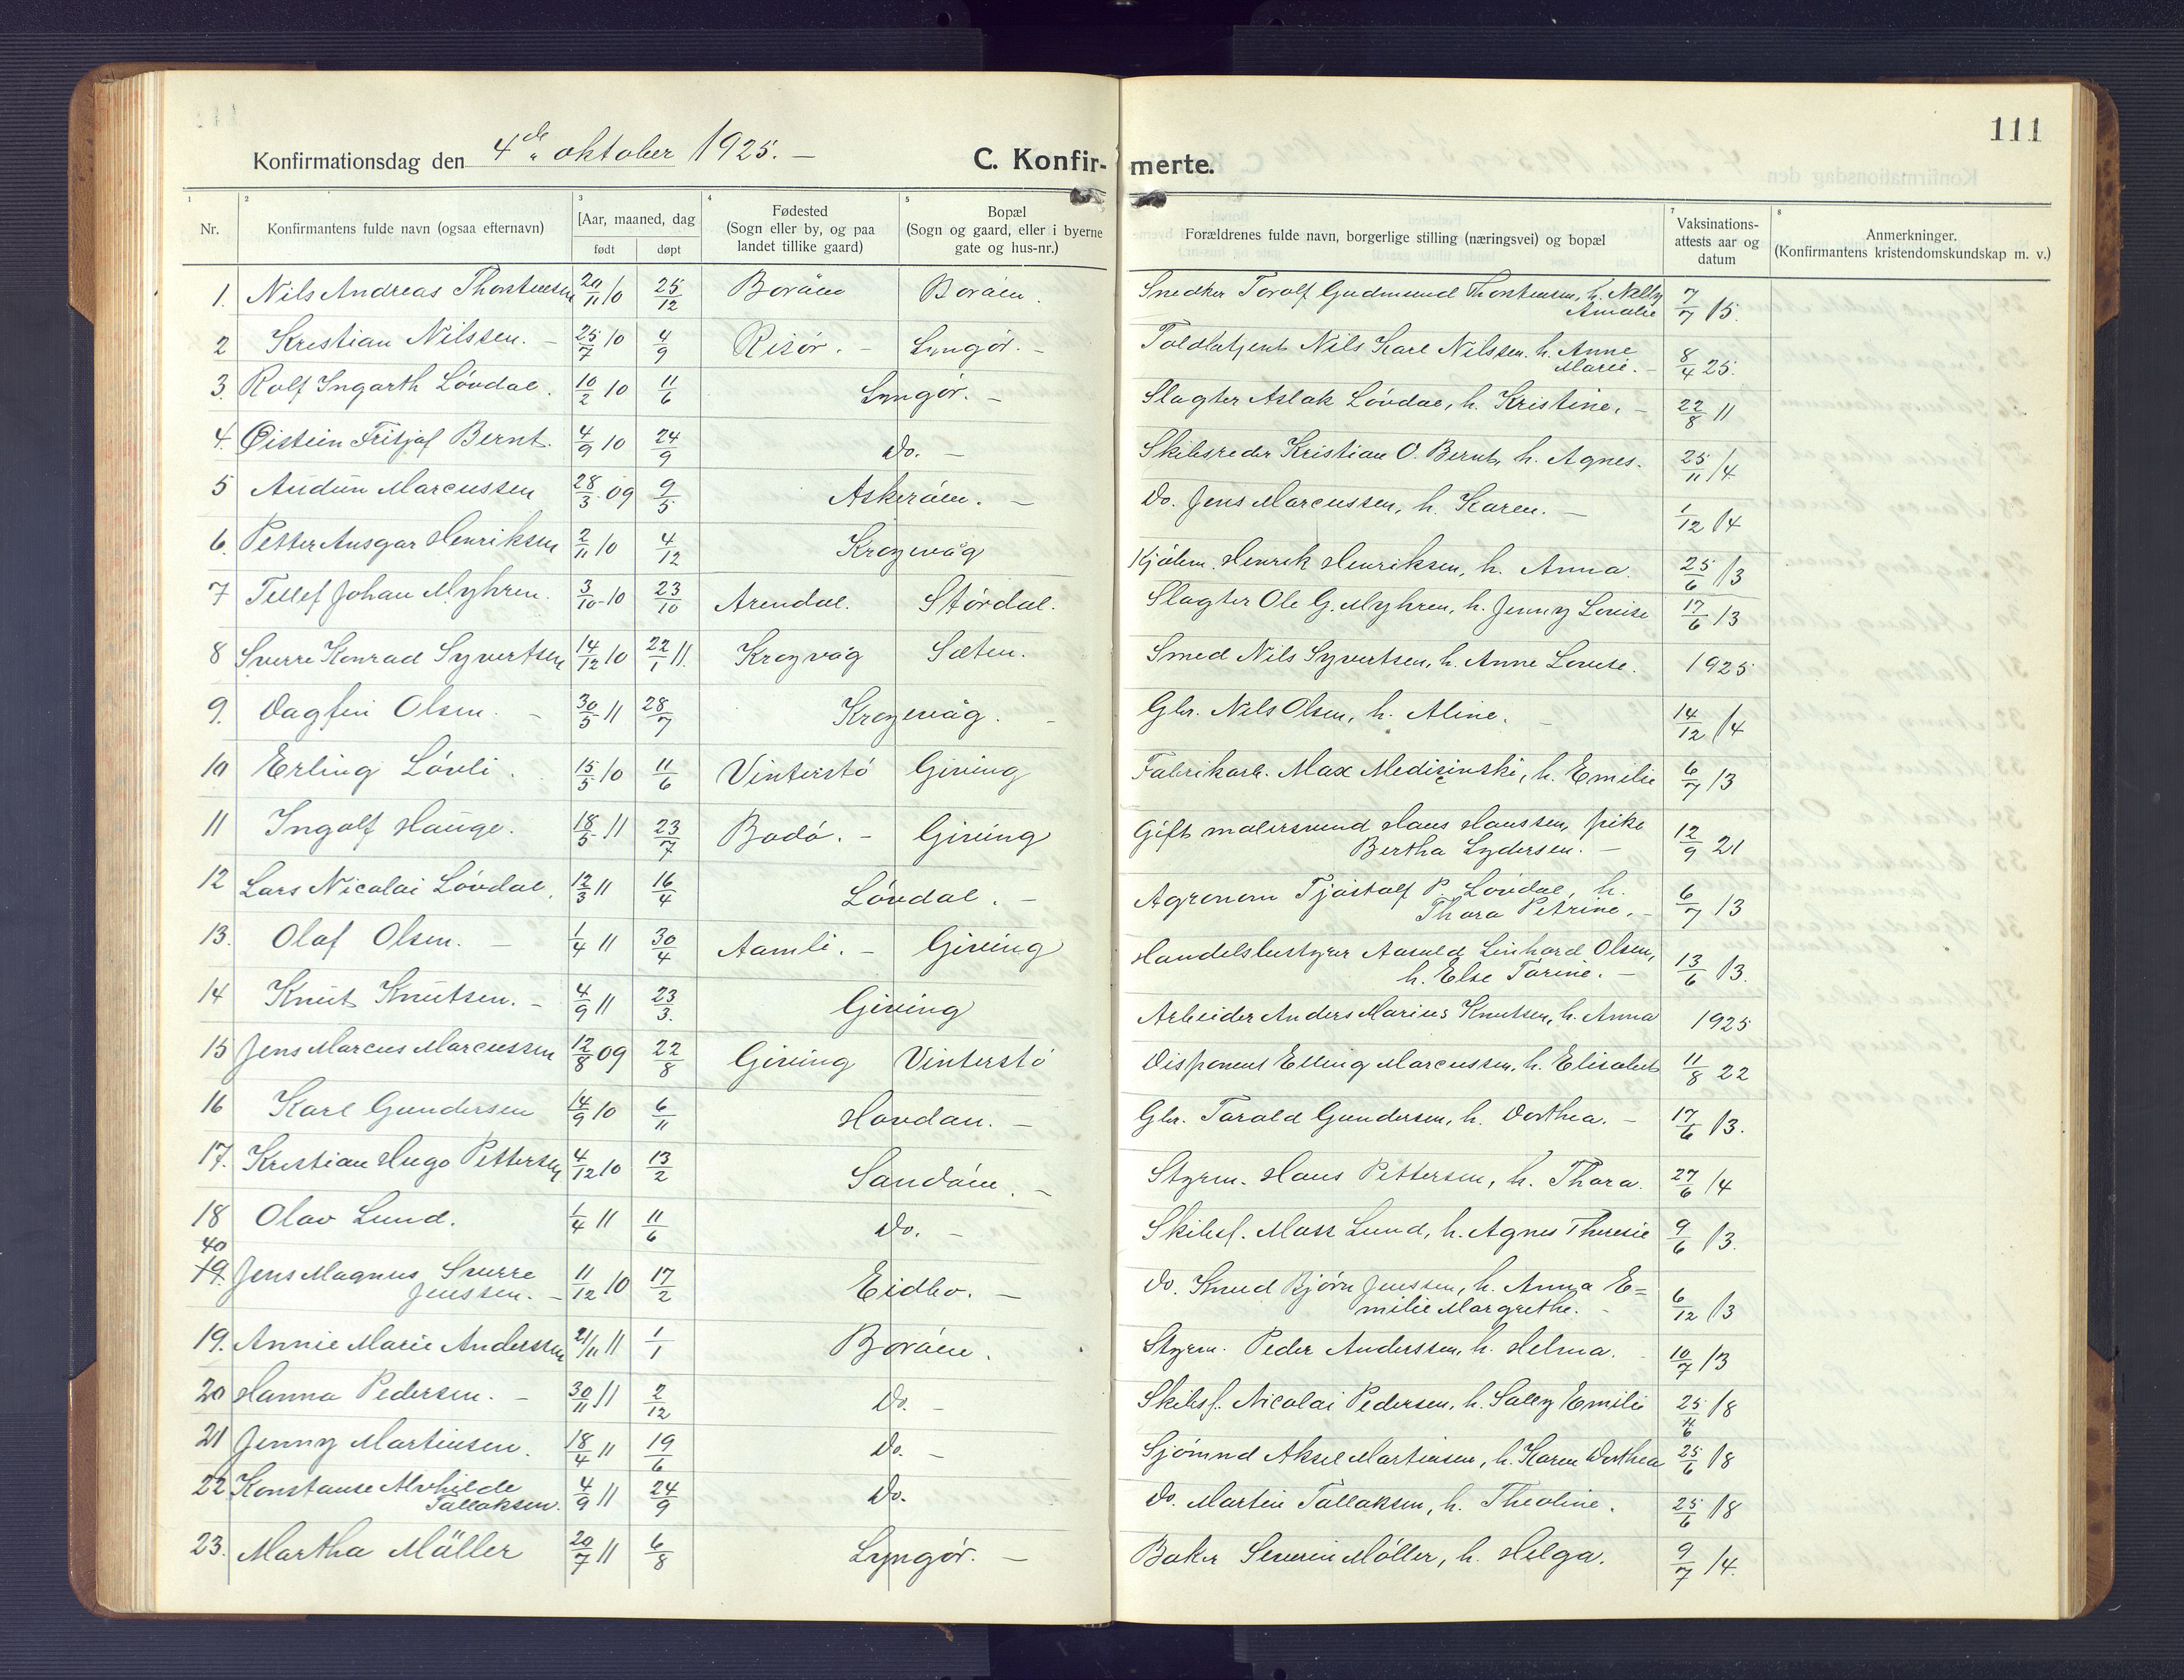 111
Konfirmationsdag den 4de oktober 1925. — C. Konfir- merte.
1 2 3 4 5 7 8
Nr. Konfirmantens fulde navn (ogsaa efternavn) [Aar, maaned, dag født døpt
Fødested (Sogn eller by, og paa landet tillike gaard)
Bopæl (Sogn og gaard, eller i byerne gate og hus-nr.)
Forældrenes fulde navn, borgerlige stilling (næringsvei) og bopæl
Vaksinations-attests aar og datum
Anmerkninger. (Konfirmantens kristendomskundskap m. v.)
1. Nils Andreas Thorstensen 20/11 10 25/12 Borøen Borøen. Snedker Torolf Gudmund Thorstensen, h. Nelly Amalie 7/7 15.
2 Kristian Nilssen. — 25/7 10 4/9 Risør. — Lyngør. — Nils Karl Nilssen. h. Anne Marie. — 8/4 25.
3. Rolf Ingarth Løvdal. 10/2 10 11/6 Lyngør. — Slagter Aslak Løvdal, h. Kristine, — 22/8 11
4. Øistein Fritjof Bernt. 4/9 10 24/9 Do. — Skibsreder Kristian O. Bernt, h. Agnes. 25/11 14
5 Audun Marcussen 28/3 09 9/5 Askerøen. — Do. Jens Marcussen, h. Karen. — 1/12 14
6. Petter Ansgar Henriksen 2/11 10 4/12 Krogevåg Kjølem. Henrik Henriksen, h. Anna. 25/6 13
7 Tellef Johan Myhren. 3/10 10 23/10 Arendal. Størdal. Slagter Ole G. Myhren, h. Jenny Louise 17/6 13
8 Sverre Konrad Syvertsen 14/12 10 22/1 11. Krogvåg Sæten. Smed Nils Syvertsen, h. Anne Lovise. 1925
9. Dagfin Olsen. — 30/5 11 28/7 Krogevåg. — Gbr. Nils Olsen, h. Aline. — 14/12 14
10 Erling Løvli. 15/5 10 11/6 Vinterstø Giving Fabrikarb. Max Medicinski, h. Emilie 6/7 13
11 Ingolf Hauge. 18/5 11 23/7 Bodø. — Giving Gift malersvend Hans Hanssen, pike Bertha Lydersen. — 12/9 21
12 Lars Nicolai Løvdal. 12/3 11 16/4 Løvdal. — Agronom Tjøstolf P. Løvdal, h. Thora Petrine. — 6/7 13
13. Olaf Olsen. — 1/4 11 30/4 Aamli. — Giving Handelsbestyrer Linhard Olsen, h. Else Tarine. — 13/6 13.
14 Knut Knutsen. — 4/9 11 23/3. Giving Arbeider Anders Marius Knutsen, h. Anna 1925
15 Jens Marcus Marcussen 12/8 09 22/8 Giving Vinterstø Disponent Elling Marcussen, h. Elisabet 11/8 22
16 Karl Gundersen 14/9 10 6/11 Havdan. — Gbr. Tarald Gundersen, h. Dorthea. — 17/6 13.
17. Kristian Hugo Pettersen 4/12 10 13/2 Sandøen. — Styrm. Hans Pettersen, h. Thora. 27/6 14
18 Olav Lund. 1/4 11 11/6 Do. — Skibsf. Mass Lund, h. Agnes Theresie 9/6 13.
40
19. Jens Magnus Sverre Jenssen. — 11/12 10 17/2 Eidbo. — Do. Knud Bjørn Jenssen, h. Anna E= milie Margrethe. — 6/12 13
19. Annie Marie Anderssen 21/11 11 1/1 Borøen. Styrm. Peder Anderssen, h. Helma. — 10/7 13
20 Hanna Pedersen. — 30/11 11 2/12 Do. — Skibsf. Nicolai Pedersen, h. Sally Emilie 25/6 18
21 Jenny Martinsen. 18/4 11 19/6 Do. — Sjømnd Aksel Martinsen, h. Karen Dorthea 25/6 18
22 Konstanse Alvhilde Tallaksen. 4/9 11 24/9 Do. Do. Martin Tallaksen, h. Theoline. 25/6 18
23. Martha Møller 20/7 11 6/8 Lyngør. — Baker Severin Møller, h. Helga. 9/7 14.